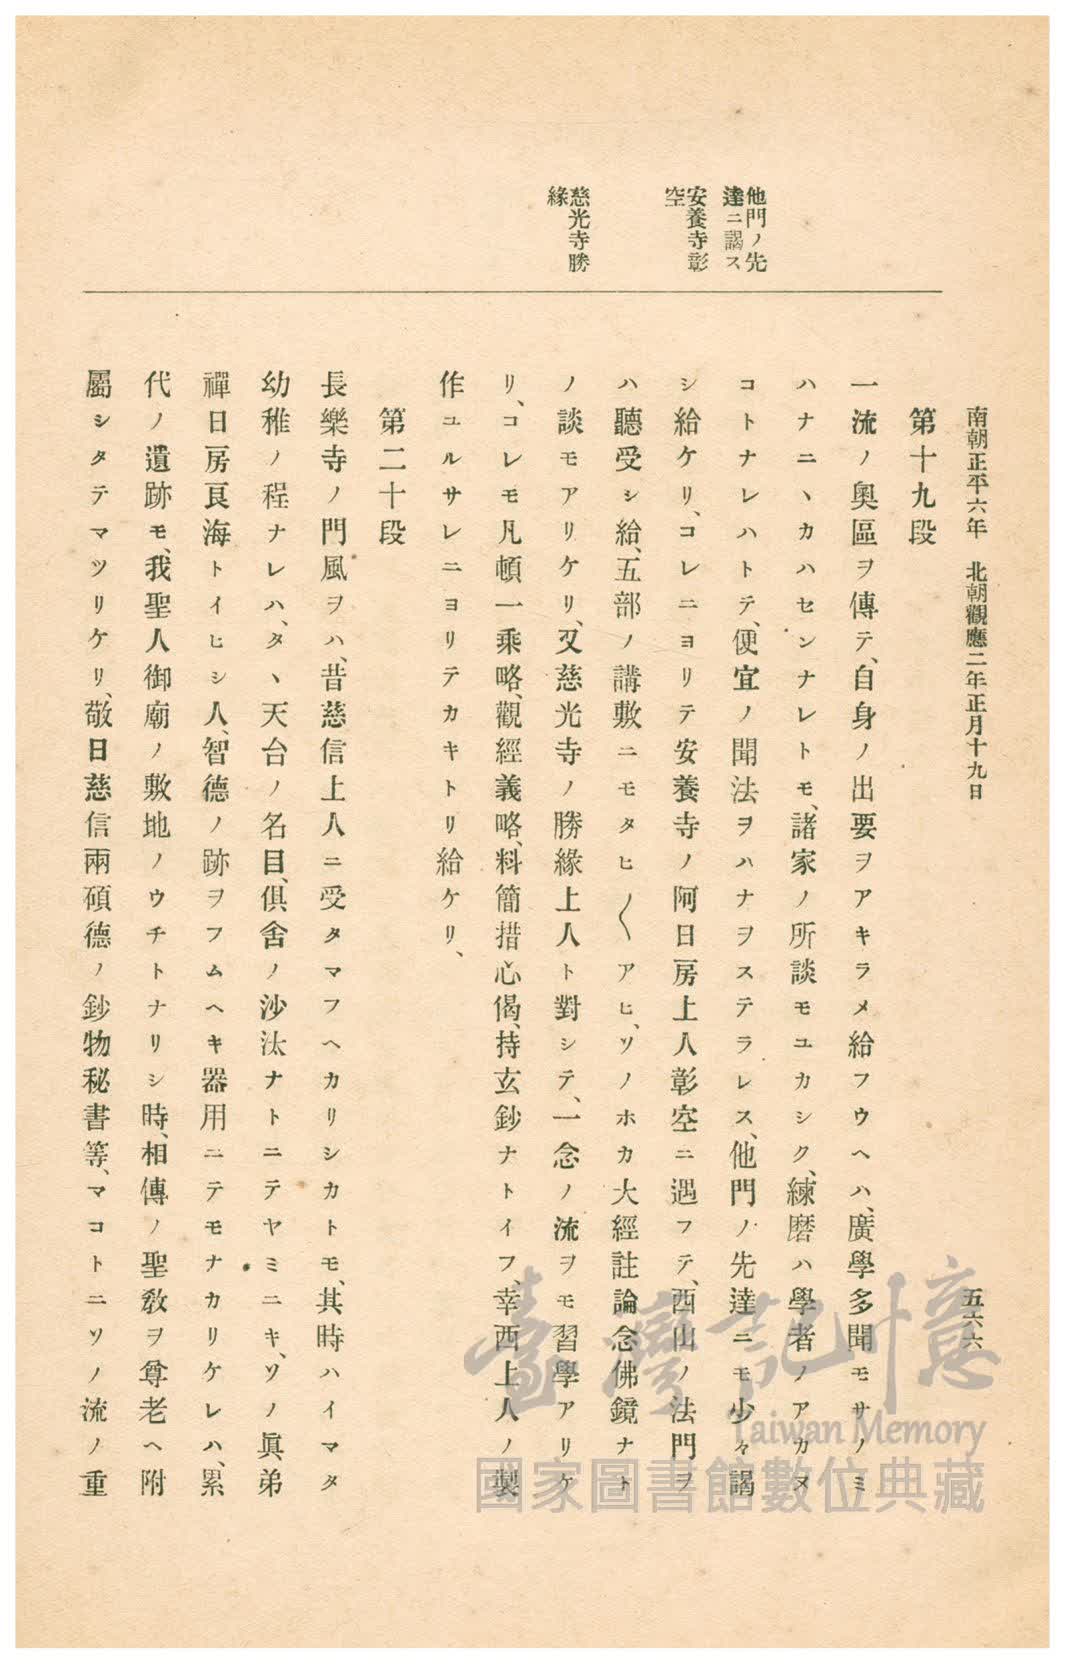 南朝正平六年　北朝觀應二年正月十九日
五六六
他門ノ先
達ニ謁ス
安養寺彰
空
慈光寺勝
緣
第十九段
一流ノ奧區ヲ傳テ、自身ノ出要ヲアキラメ給フウヘハ、廣學多聞モサノミ
ハナニヽカハセンナレトモ、諸家ノ所談モユカシク、練磨ハ學者ノアカヌ
コトナレハトテ、便宜ノ聞法ヲハナヲステラレス、他門ノ先達ニモ少々謁
シ給ケリ、コレニヨリテ安養寺ノ阿日房上人彰空ニ遇フテ、西山ノ法門ヲ
ハ聽受シ給、五部ノ講敷ニモタヒ〱アヒ、ソノホカ大經註論念佛鏡ナト
ノ談モアリケリ、又慈光寺ノ勝緣上人ト對シテ、一念ノ流ヲモ習學アリケ
リ、コレモ凡頓一乘略、觀經義略、料簡措心偈、持玄鈔ナトイフ、幸西上人ノ製
作ユルサレニヨリテカキトリ給ケリ、
第二十段
長樂寺ノ門風ヲハ、昔慈信上人ニ受タマフヘカリシカトモ、其時ハイマタ
幼稚ノ程ナレハ、タヽ天台ノ名目、俱舍ノ沙汰ナトニテヤミニキ、ソノ眞弟
禪日房良海トイヒシ人、智德ノ跡ヲフムヘキ器用ニテモナカリケレハ、累
代ノ遺跡モ、我聖人御廟ノ敷地ノウチトナリシ時、相傳ノ聖敎ヲ尊老ヘ附
屬シタテマツリケリ、敬日慈信兩碩德ノ鈔物秘書等、マコトニソノ流ノ重
臺灣記憶
Taiwan Memory
國家圖書館數位典藏